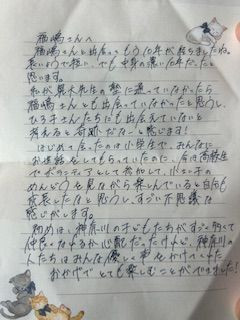 福嶋さんへ
福嶋さんと出会ってもう10年が経ちましたね。
長いようで短い、でも中身の濃い10年だったと
思います。
私が興大先生の塾に通っていなかったら
福嶋さんとも出会っていなかったと思うし、
ひろ子んちにも出会えていないと
考えると奇跡だな〜と感じます！
はじめて会ったのは小学生で、みんなに
お世話をしてもらっていたのに、今は高校生
でボランティアとして参加して、小さい子の
めんどうを見ながら楽しんでいると自分も
成長したなと思うし、すごい不思議な
感じがします。
初めは、神奈川の子どもたちがすごい多くて
仲良くなれるか心配だったけれど、神奈川の
人たちはみんな優しく声をかけてくれた
おかげでとても楽しむことができました！